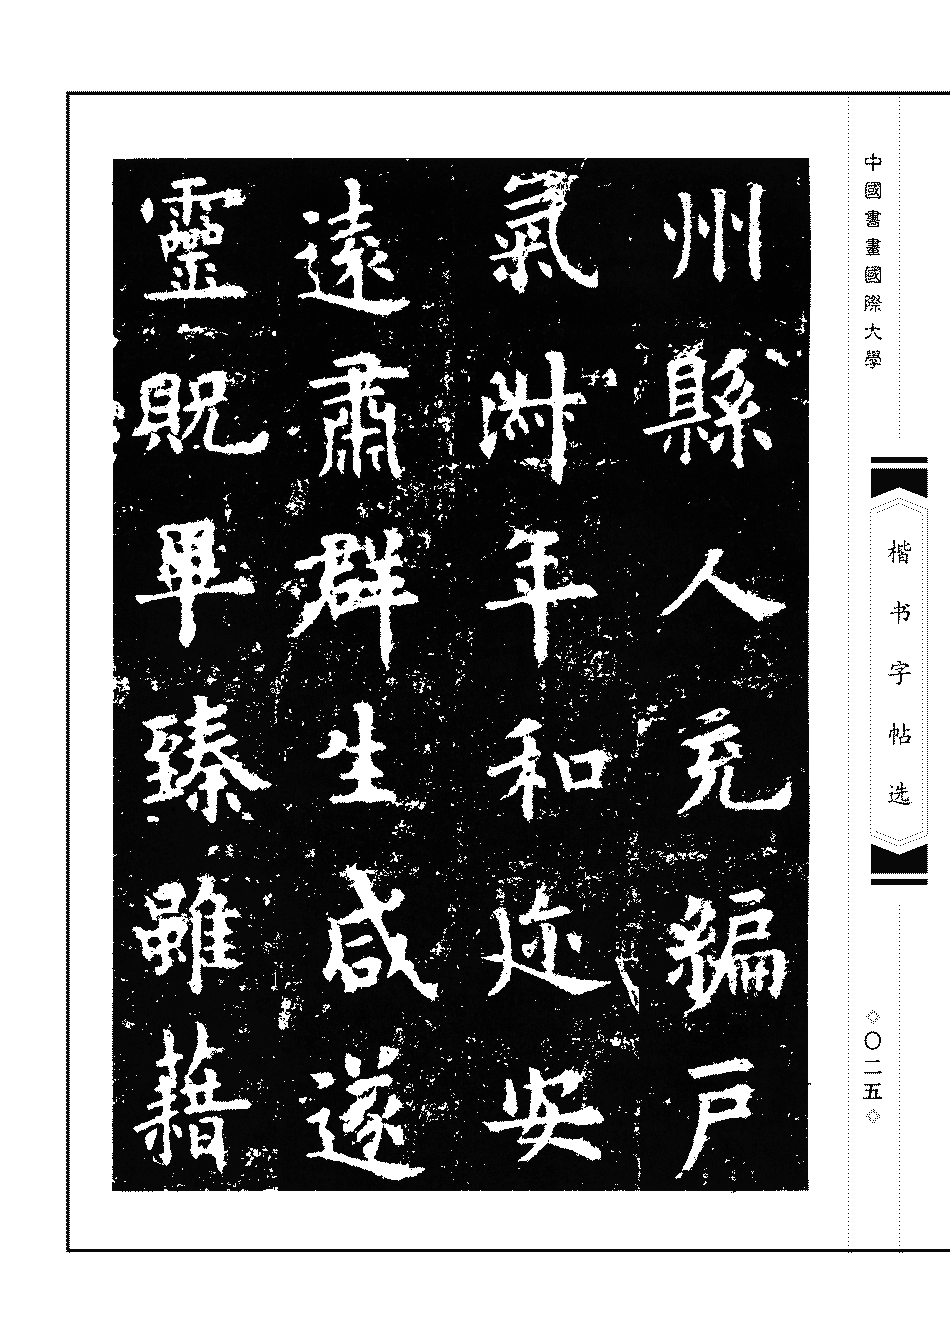 中國書畫國際大學
楷书字帖选
◇〇二五◇
州縣人充編戶
氣淑年和迩安
遠肅群生咸遂
靈貺畢臻雖藉